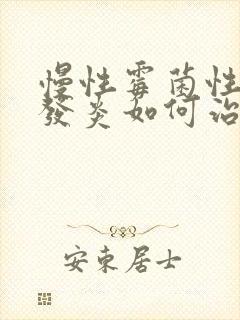 慢性霉菌性
發炎如何治
安東居士